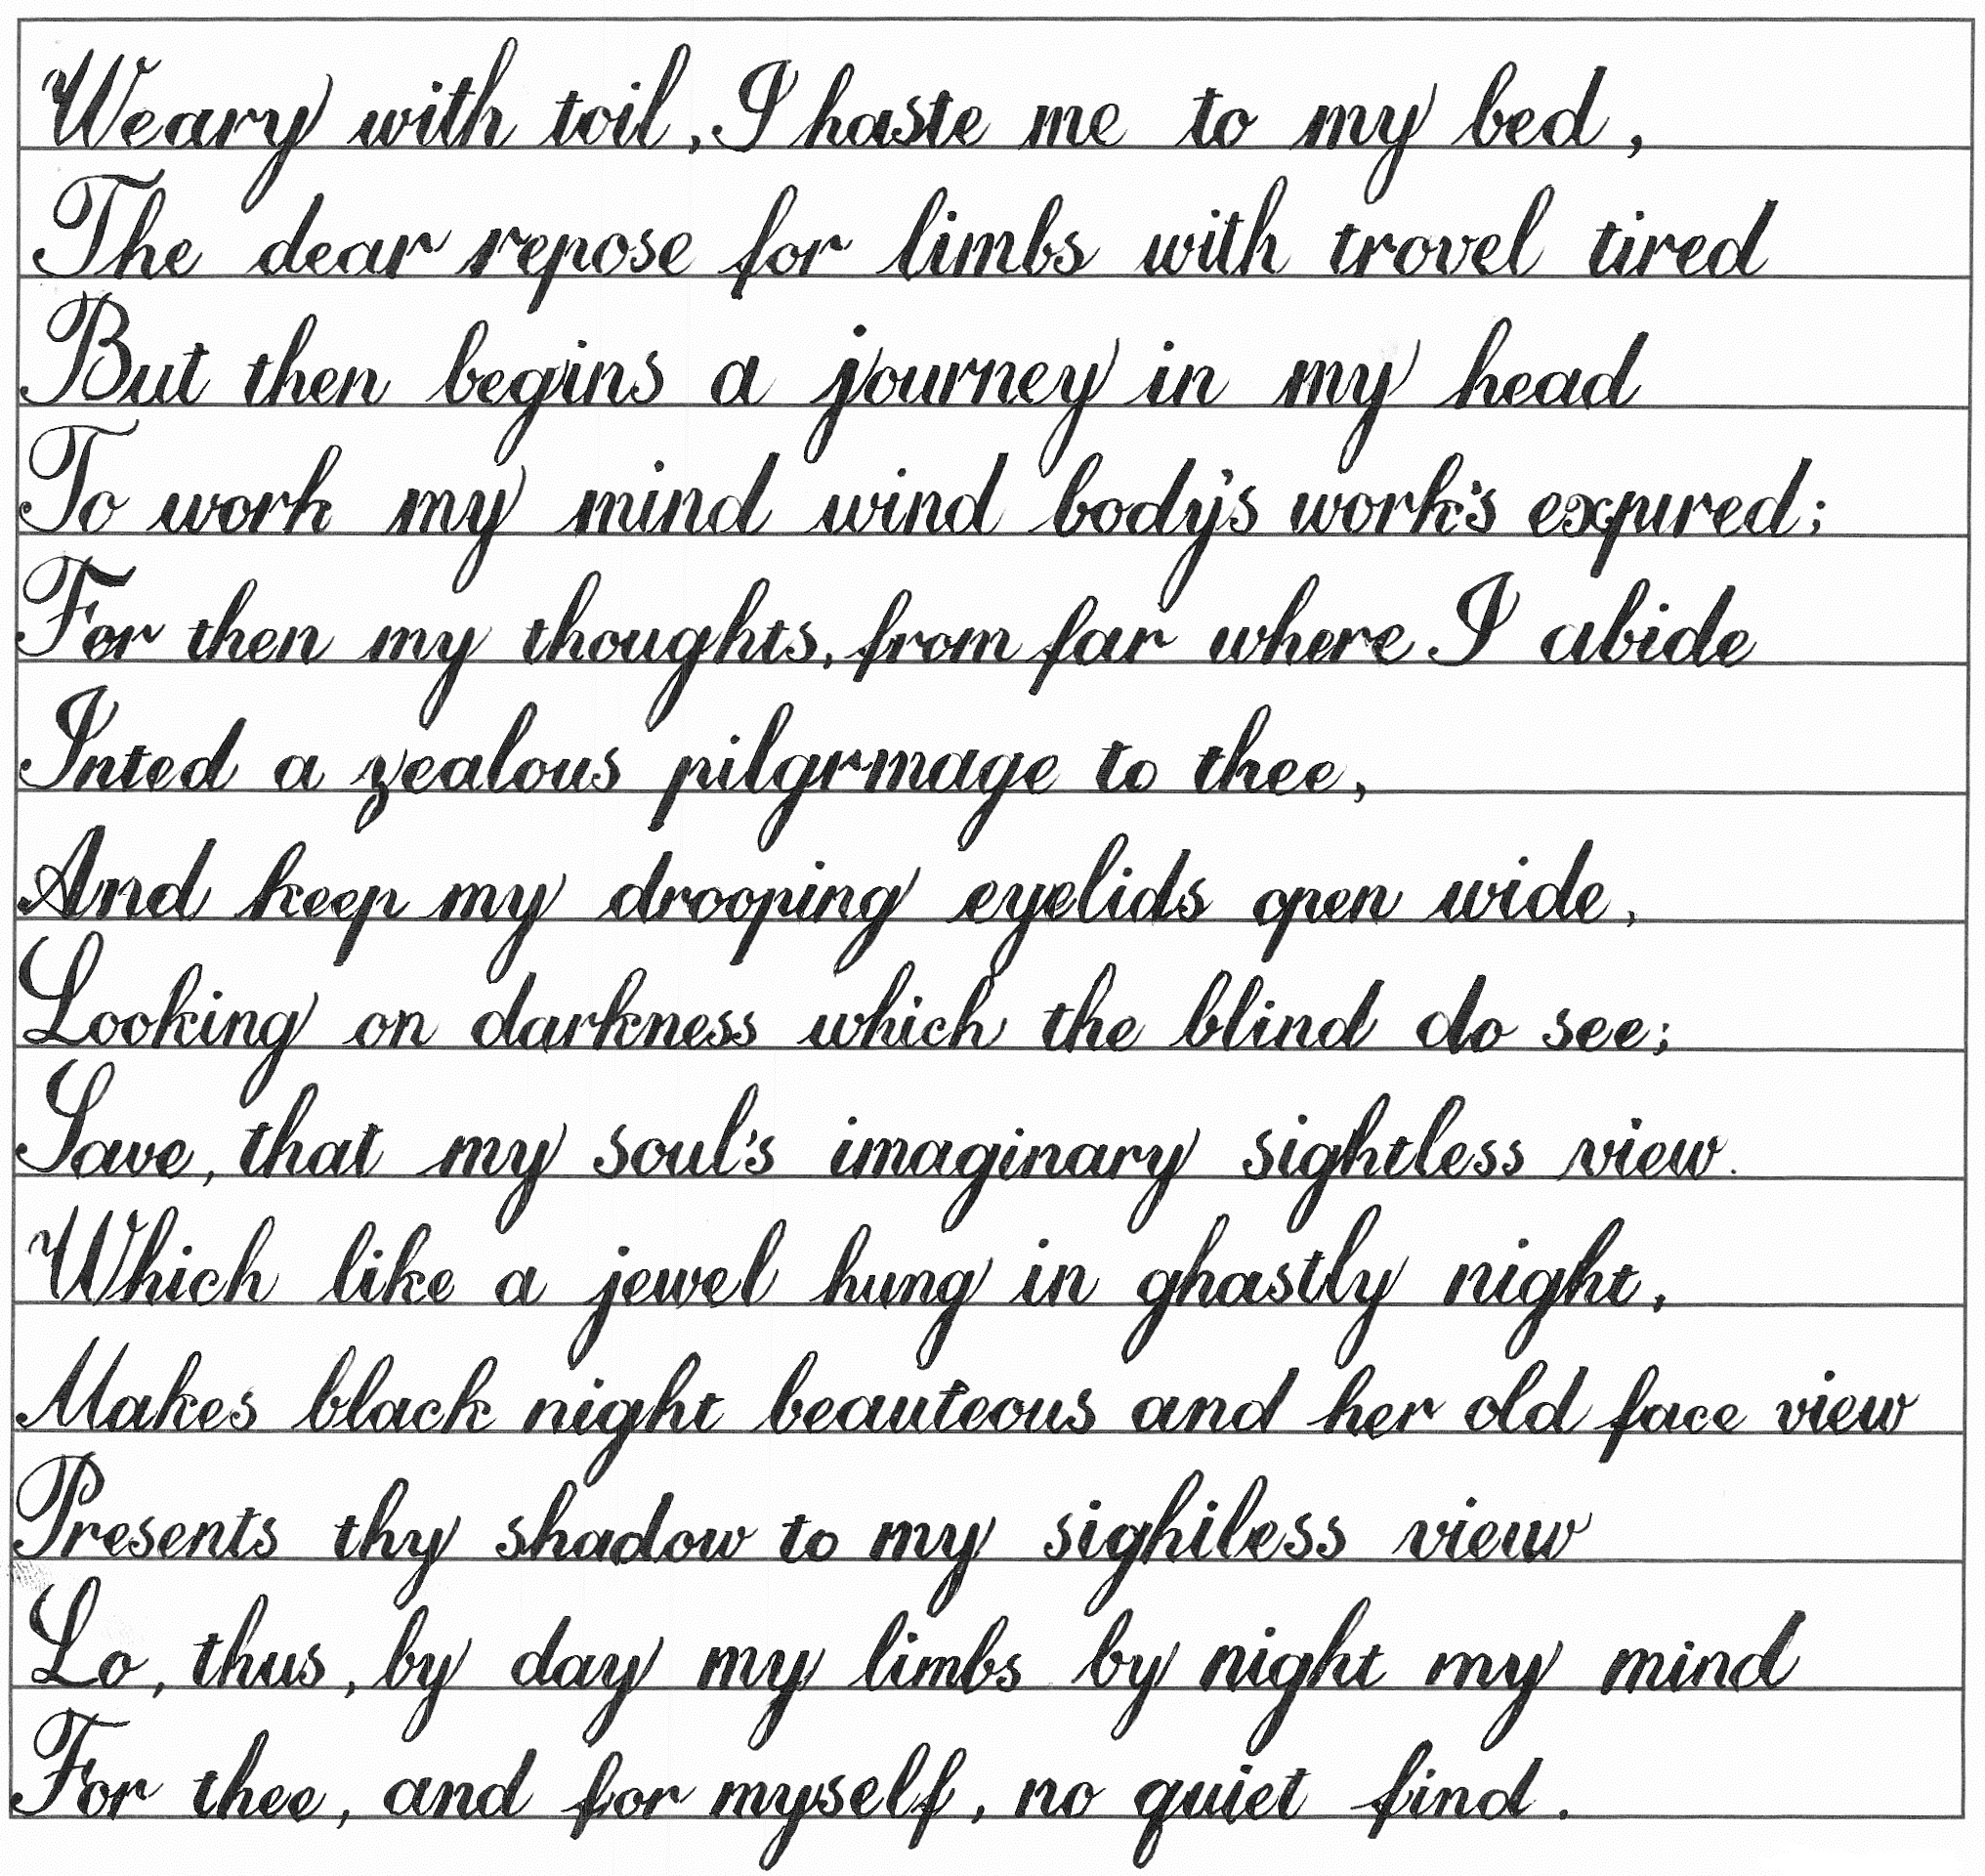 Weary with toil, I haste me to my bed,
The dear repose for limbs with trovel tired
But then begins a journey in my head
To work my mind wind body's work's expired;
For then my thoughts, from far where I abide
Inted a zealous pilgrmage to thee,
And keep my drooping eyelids open wide,
Looking on darkness which the blind do see;
Save, that my soul's imaginary sightless view.
Which like a jewel hung in ghastly night,
Makes black night beauteous and her old face view
Presents thy shadow to my sighiless view
Lo, thus, by day my limbs by night my mind
For thee, and for myself, no quiet find.